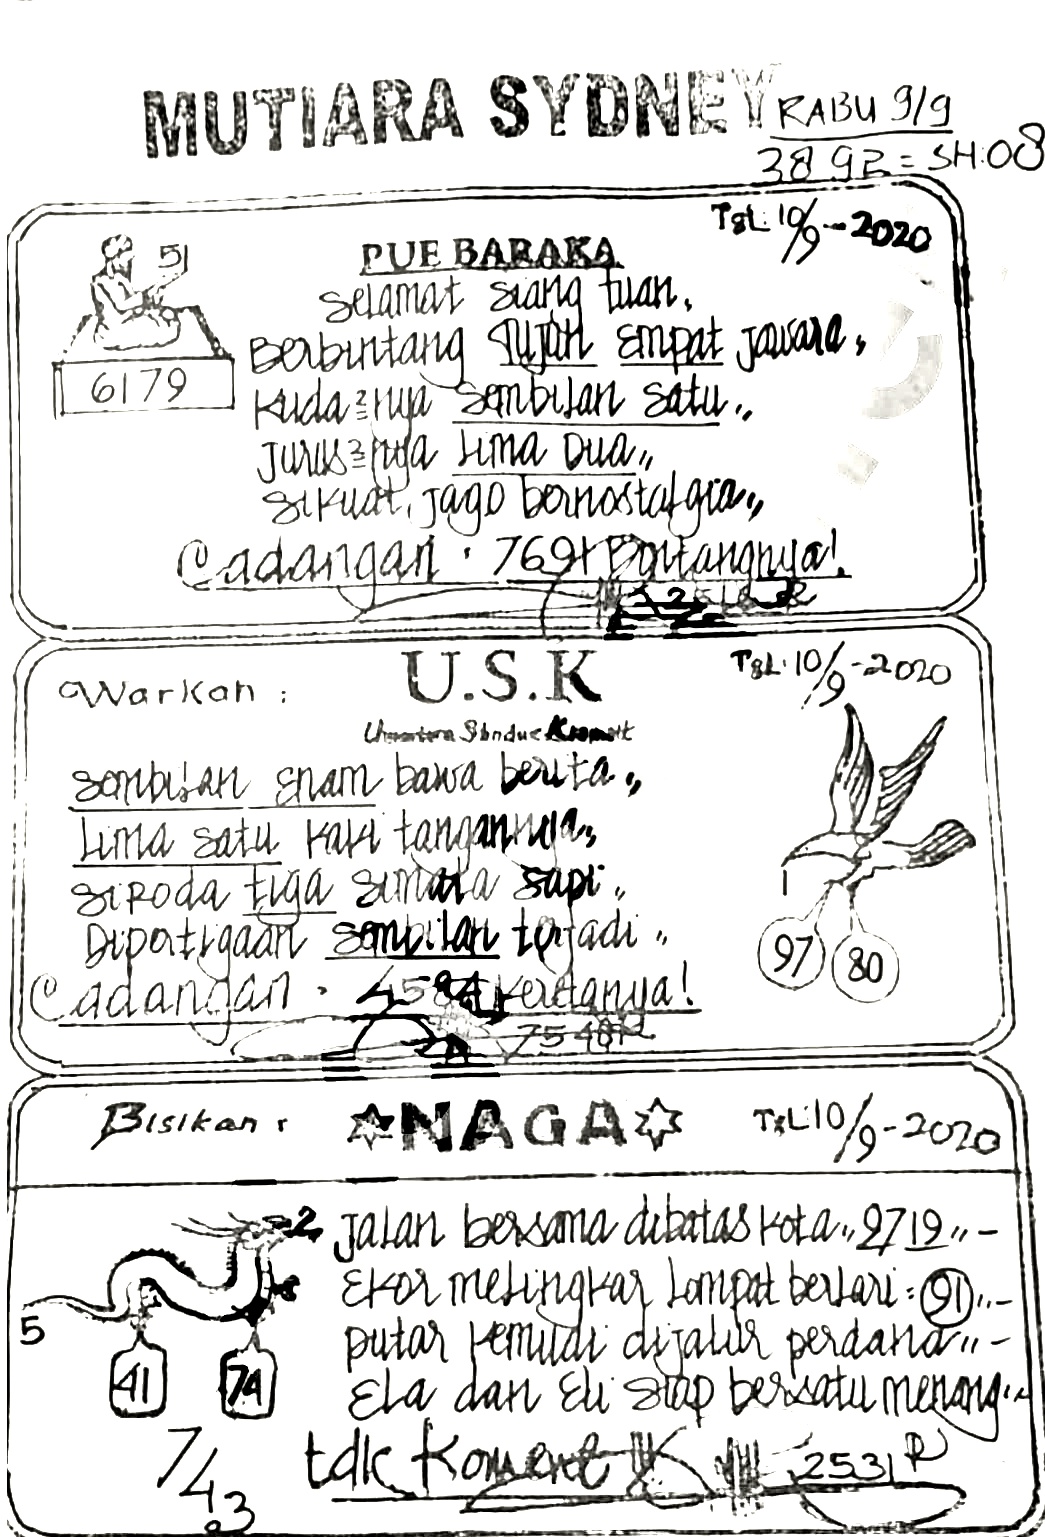 MUTIARA SYDNEY
RABU 9/9
3892 = SH:08
TgL: 10/9-2020
51
6179
PUE BARAKA
Selamat siang tuan,
Berbintang Tujuh Empat jawara,
Kuda²nya sembilan satu,,
Jurus²nya Lima Dua,,
Sikuat, jago bernostalgia,,
Cadangan · 7691 Bontangnya!
Warkah :
U.S.K
TgL: 10/9-2020
Sembilan enam bawa berita,,
Lima satu kaki tangannya,,
Siroda tiga simata sapi,,
Dipertigaan sembilan terjadi,,
Cadangan · 4584 keretanya!
97
80
7548R
Bisikan :
NAGA
TgL 10/9-2020
2
5
41
74
7/43
Jalan bersama dibatas kota,, 2719,,-
Ekor melingkar Lompat berlari: 91,,-
Putar kemudi dijalur perdana,,-
Ela dan Eli siap bersatu menang,,
tdk Koment
2531 R